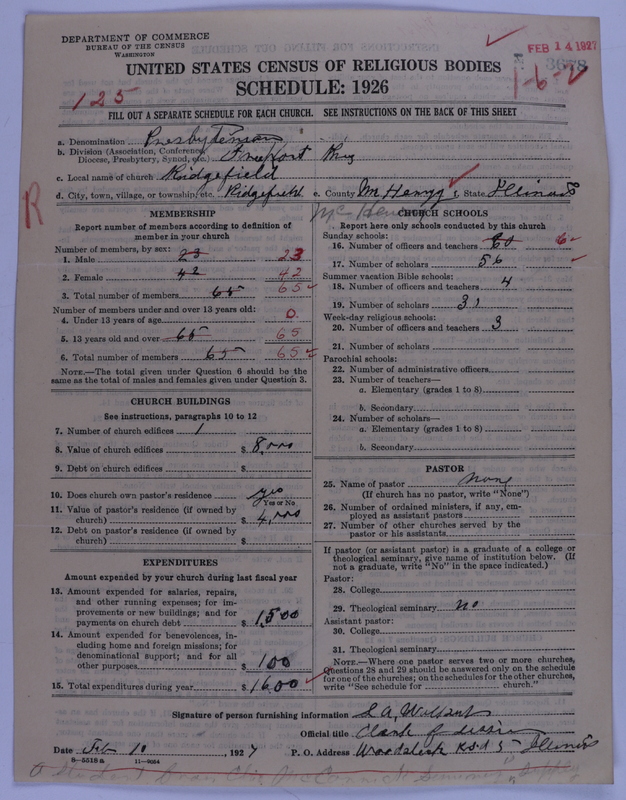 DEPARTMENT OF COMMERCE
BUREAU OF THE CENSUS
WASHINGTON
FEB 14 1927
3678
1-6-2
UNITED STATES CENSUS OF RELIGIOUS BODIES
SCHEDULE: 1926
125
FILL OUT A SEPARATE SCHEDULE FOR EACH CHURCH. SEE INSTRUCTIONS ON THE BACK OF THIS SHEET
a. Denomination Presbyterian
b. Division (Association, Conference, Diocese, Presbytery, Synod, etc.) Freeport
c. Local name of church Ridgefield
d. City, town, village, or township, etc. Ridgefield e. County McHenry f. State Illinois
R
McHenry
MEMBERSHIP
Report number of members according to definition of member in your church
Number of members, by sex:
1. Male 23 23
2. Female 42 42
3. Total number of members 65 65
Number of members under and over 13 years old:
4. Under 13 years of age 0
5. 13 years old and over 65 65
6. Total number of members 65 65
NOTE.—The total given under Question 6 should be the same as the total of males and females given under Question 3.
CHURCH BUILDINGS
See instructions, paragraphs 10 to 12
7. Number of church edifices 1
8. Value of church edifices $ 8,000
9. Debt on church edifices $
10. Does church own pastor's residence yes
Yes or No
11. Value of pastor's residence (if owned by church) $ 4,000
12. Debt on pastor's residence (if owned by church) $
EXPENDITURES
Amount expended by your church during last fiscal year
13. Amount expended for salaries, repairs, and other running expenses; for improvements or new buildings; and for payments on church debt $ 1500
14. Amount expended for benevolences, including home and foreign missions; for denominational support; and for all other purposes $ 100
15. Total expenditures during year $ 1600
CHURCH SCHOOLS
Report here only schools conducted by this church
Sunday schools:
16. Number of officers and teachers 6
17. Number of scholars 56
Summer vacation Bible schools:
18. Number of officers and teachers 4
19. Number of scholars 31
Week-day religious schools:
20. Number of officers and teachers 3
21. Number of scholars
Parochial schools:
22. Number of administrative officers
23. Number of teachers—
a. Elementary (grades 1 to 8)
b. Secondary
24. Number of scholars—
a. Elementary (grades 1 to 8)
b. Secondary
PASTOR
25. Name of pastor None
(If church has no pastor, write "None")
26. Number of ordained ministers, if any, employed as assistant pastors
27. Number of other churches served by the pastor or his assistants
If pastor (or assistant pastor) is a graduate of a college or theological seminary, give name of institution below. (If not a graduate, write "No" in the space indicated.)
Pastor:
28. College
29. Theological seminary No
Assistant pastor:
30. College
31. Theological seminary
NOTE.—Where one pastor serves two or more churches, Questions 28 and 29 should be answered only on the schedule for one of the churches; on the schedules for the other churches, write "See schedule for church."
Signature of person furnishing information
Official title Clerk of Session
Date Feb 10, 1927 P. O. Address Woodstock Illinois
8—5518 a 11—9034
A Student from McCormick Seminary